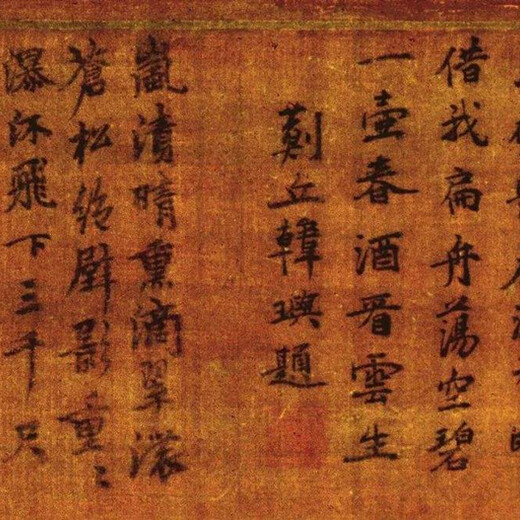 借我扁舟蕩空碧
一壺春酒看雲生
薊丘韓璵題
嵐漬晴熏滴翠濃
蒼松絶壁影重〻
瀑流飛下三千尺